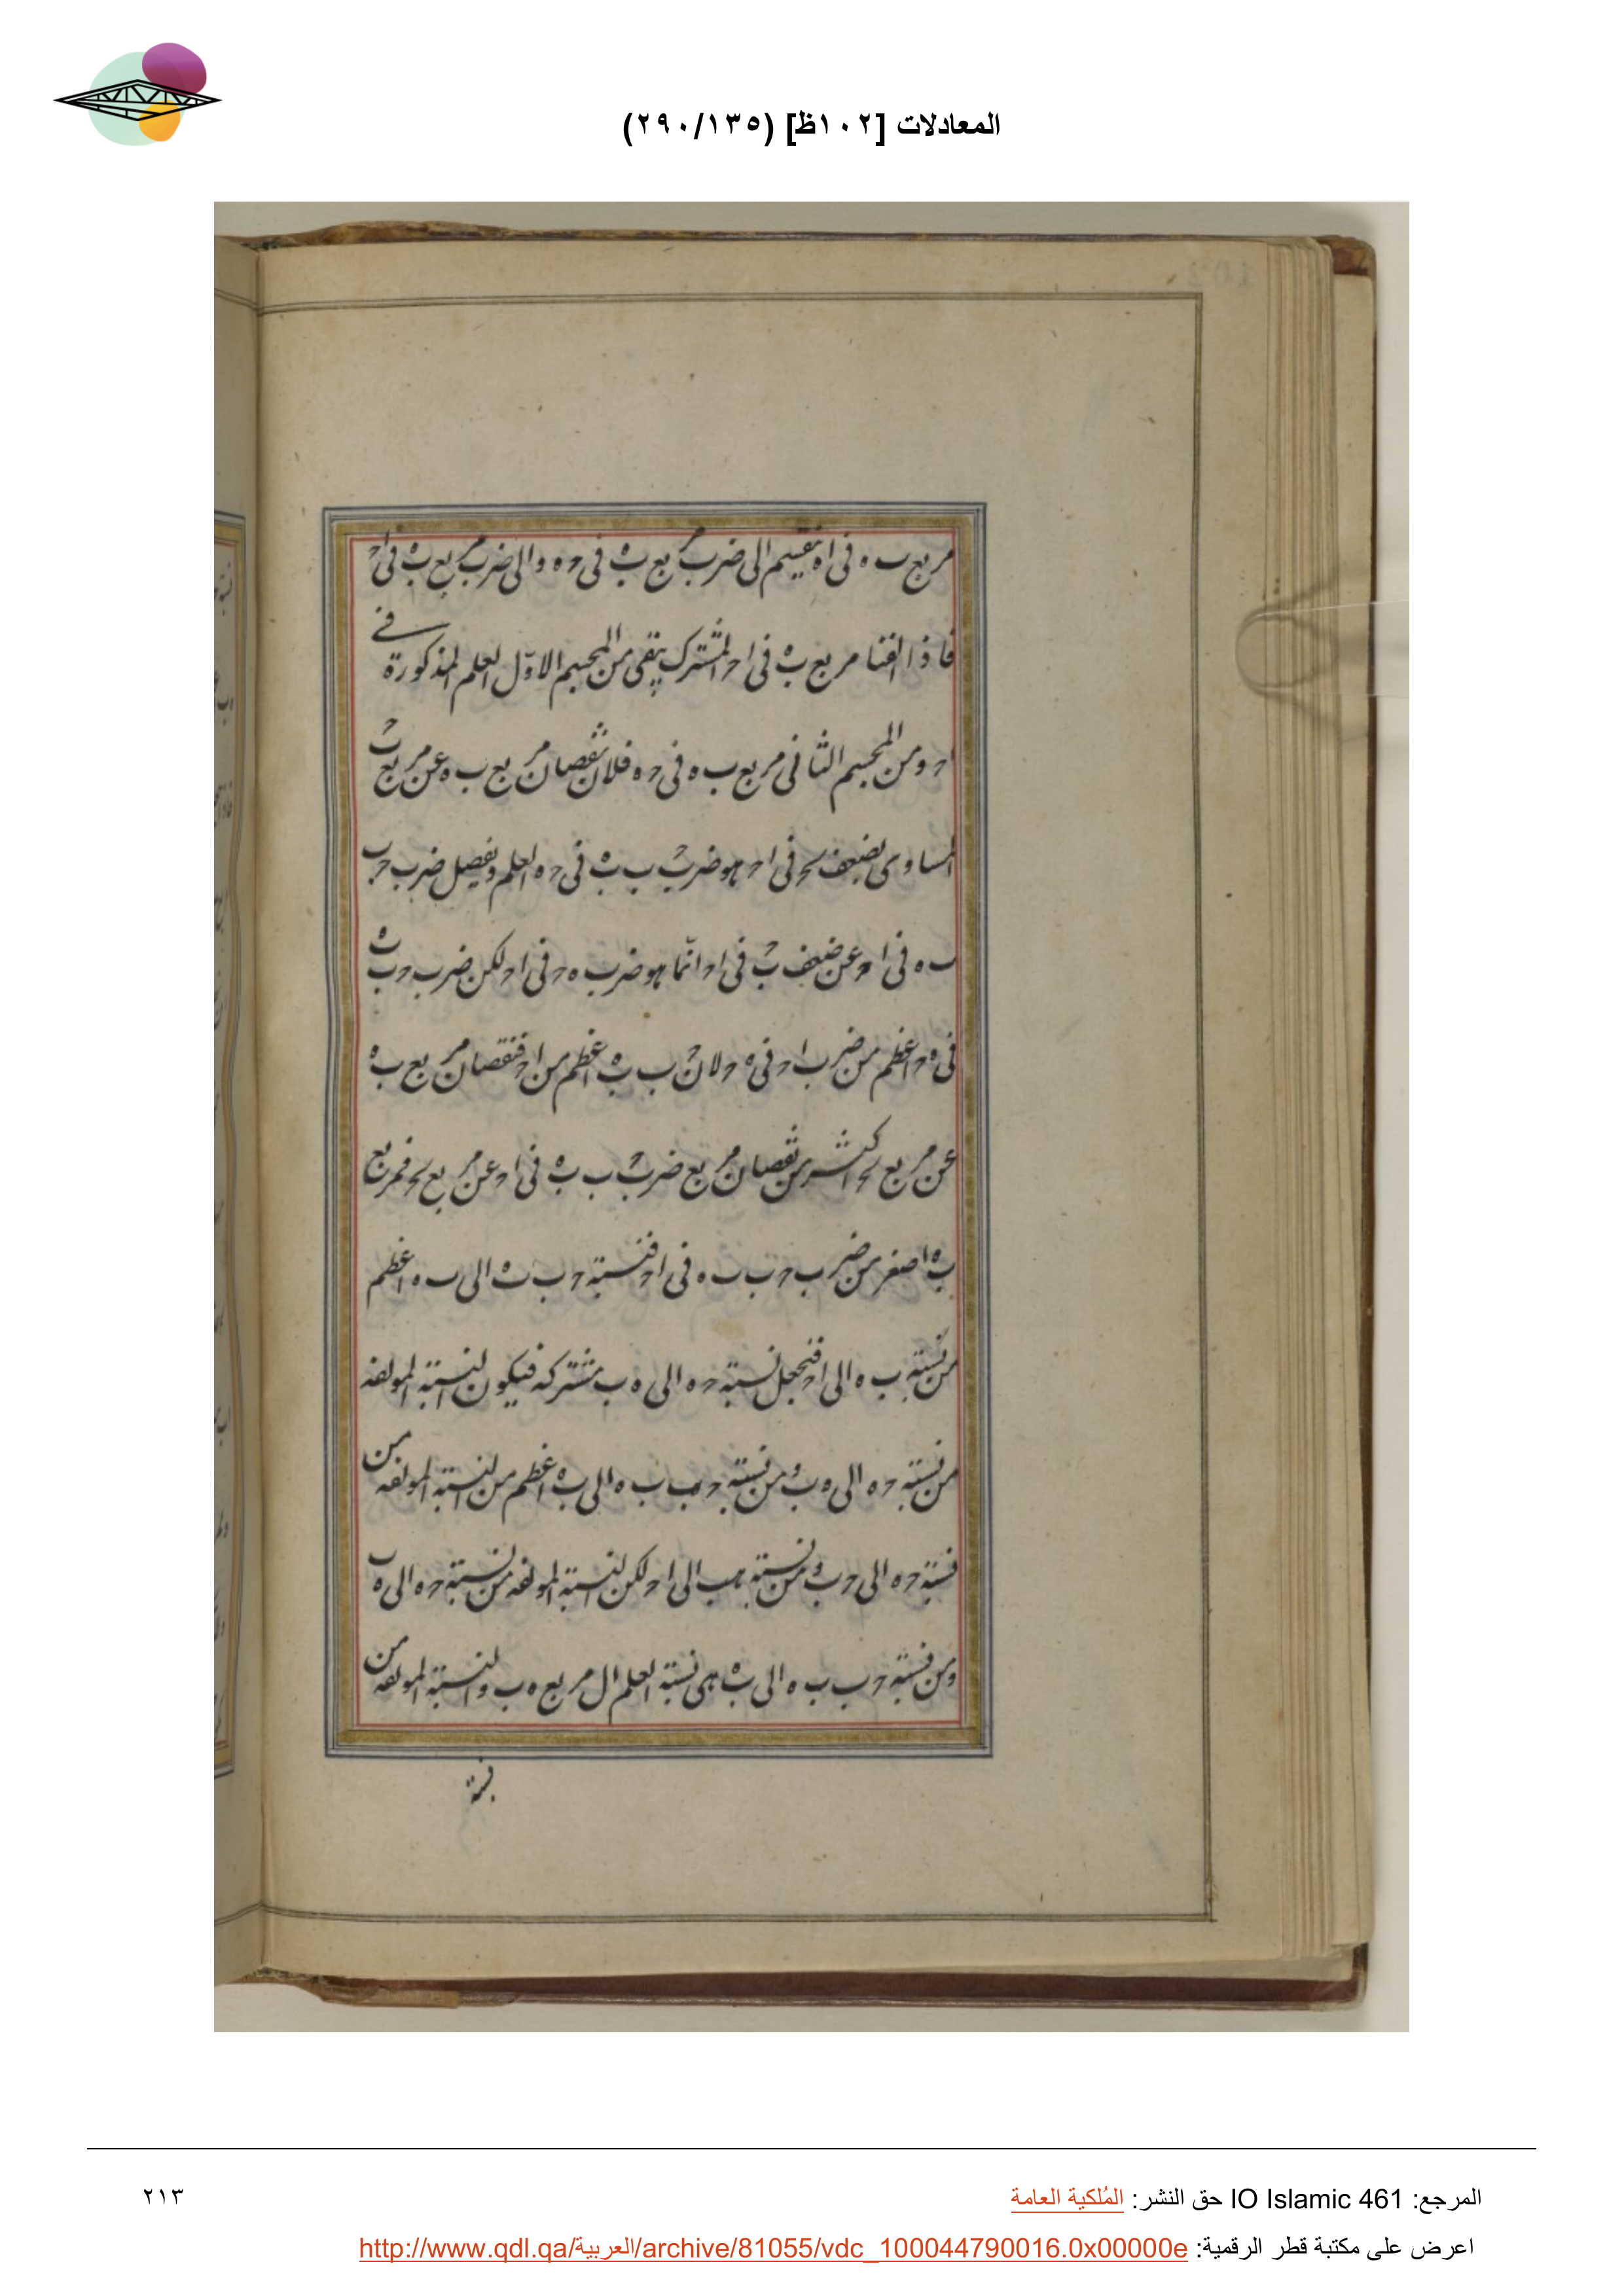 المعادلات [١٠٢ظ] (٢٩٠/١٣٥)
مربع ب ه فى اه ينقسم الى ضرب مربع ب ه فى ح ه والى ضرب مربع ب ه فى اح
فاذا الفنا مربع ب ه فى اح المشترك يبقى من المجسم الاول العلم المذكورة فى
اح ومن المجسم الثانى مربع ب ه فى ح ه فلان نقصان مربع ب ه عن مربع ب ح
المساوى لضعف فى اح هو ضرب ح ب ب ه فى ح ه العلم وتفصيل ضرب ح ب
ب ه فى اح عن ضعف ب ح فى اح انما هو ضرب ه ح فى اح لكن ضرب ح ب ب ه
فى ه ح اعظم من ضرب اح فى ه ح لان ح ب ب ه اعظم من اح فنقصان مربع ب ه
عن مربع اكثر من نقصان مربع ضرب ح ب ب ه فى اح عن مربع فمربع
ب ه اصغر من ضرب ح ب ب ه فى اح فنسبة ح ب ب ه الى ب ه اعظم
من نسبة ب ه الى اح فنجعل نسبة ح ه الى ه ب مشتركه فيكون النسبة المولفه
من نسبة ح ه الى ه ب ومن نسبة ح ب ب ه الى ب ه اعظم من النسبة المولفه من
نسبة ح ه الى ح ب ومن نسبة ه ب الى اح لكن النسبة المولفه من نسبة ح ه الى ه ب
ومن نسبة ح ب ب ه الى ب ه هى نسبة العلم ال مربع ه ب والنسبة المولفه من
نسبة
المرجع: IO Islamic 461 حق النشر: المُلكية العامة
٢١٣
اعرض على مكتبة قطر الرقمية: http://www.qdl.qa/العربية/archive/81055/vdc_100044790016.0x00000e